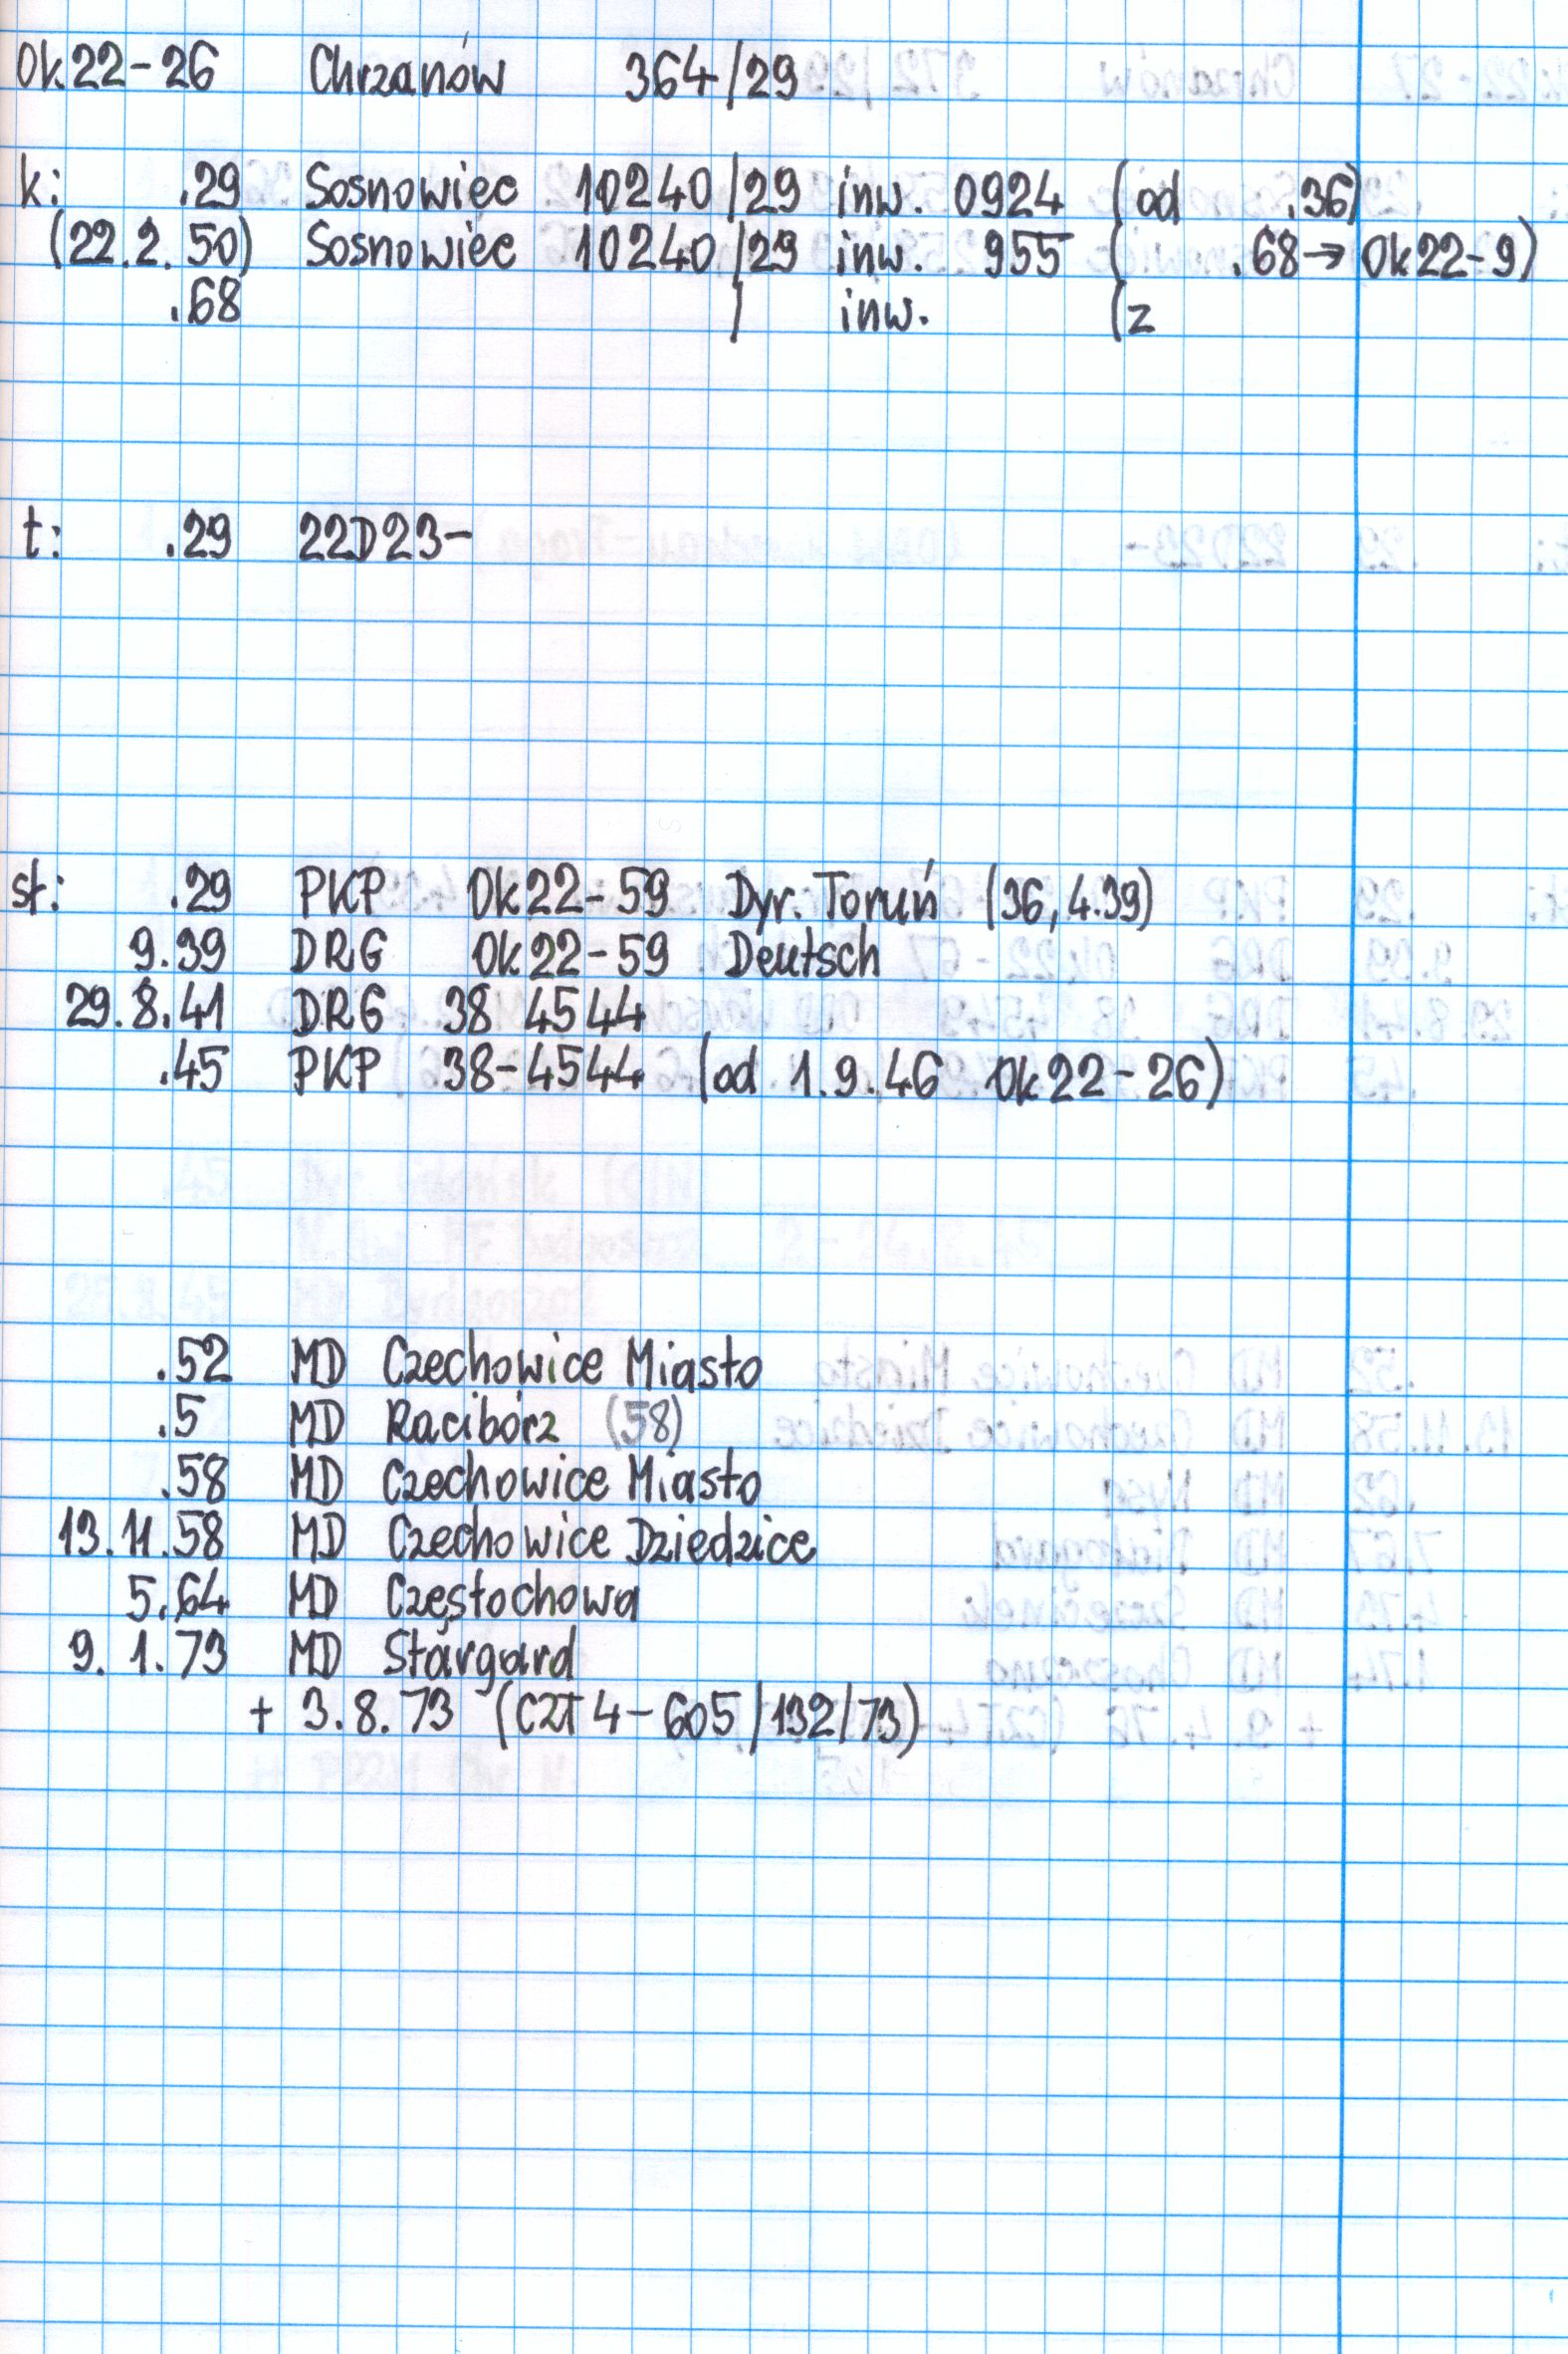 Ok22-26 Chrzanów 364/29
k: .29 Sosnowiec 10240/29 inw. 0924 (od .36)
(22.2.50) Sosnowiec 10240/29 inw. 955 ( .68→Ok22-9)
.68 / inw. (z
t: .29 22D23-
sł: .29 PKP Ok22-59 Dyr. Toruń (36, 4.39)
9.39 DRG Ok22-59 Deutsch
29.8.41 DRG 38 4544
.45 PKP 38-4544 (od 1.9.46 Ok22-26)
.52 MD Czechowice Miasto
.5 MD Racibórz (58)
.58 MD Czechowice Miasto
13.11.58 MD Czechowice Dziedzice
5.64 MD Częstochowa
9.1.73 MD Stargard
+ 3.8.73 (CZT4-605/132/73)